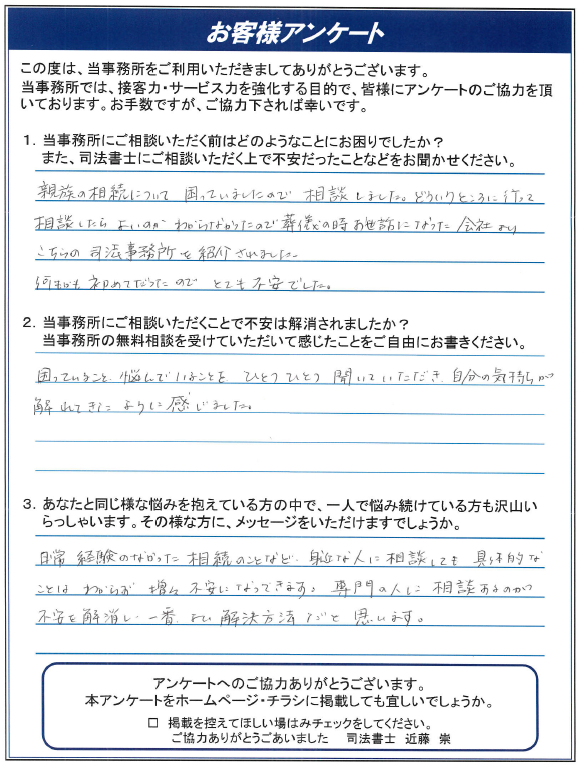 お客様アンケート
この度は、当事務所をご利用いただきましてありがとうございます。
当事務所では、接客力・サービス力を強化する目的で、皆様にアンケートのご協力を頂
いております。お手数ですが、ご協力下されば幸いです。
1．当事務所にご相談いただく前はどのようなことにお困りでしたか？
また、司法書士にご相談いただく上で不安だったことなどをお聞かせください。
親族の相続について 困っていましたので 相談しました。どういうところに行って
相談したらよいのか わからなかったので葬儀の時お世話になった会社より
こちらの司法事務所を紹介されました
何もかも初めてだったので とても不安でした。
2．当事務所にご相談いただくことで不安は解消されましたか？
当事務所の無料相談を受けていただいて感じたことをご自由にお書きください。
困っていること、悩んでいることを、ひとつひとつ 聞いていただき、自分の気持ちが
解れてきたように感じました。
3．あなたと同じ様な悩みを抱えている方の中で、一人で悩み続けている方も沢山い
らっしゃいます。その様な方に、メッセージをいただけますでしょうか。
日常 経験のなかった 相続のことなど、身近な人に相談しても 具体的な
ことは わからず 増々 不安になってきます。専門の人に 相談するのが
不安を解消し、一番 よい解決方法だと 思います。
アンケートへのご協力ありがとうございます。
本アンケートをホームページ・チラシに掲載しても宜しいでしょうか。
□ 掲載を控えてほしい場はみチェックをしてください。
ご協力ありがとうごあいました 司法書士 近藤 崇